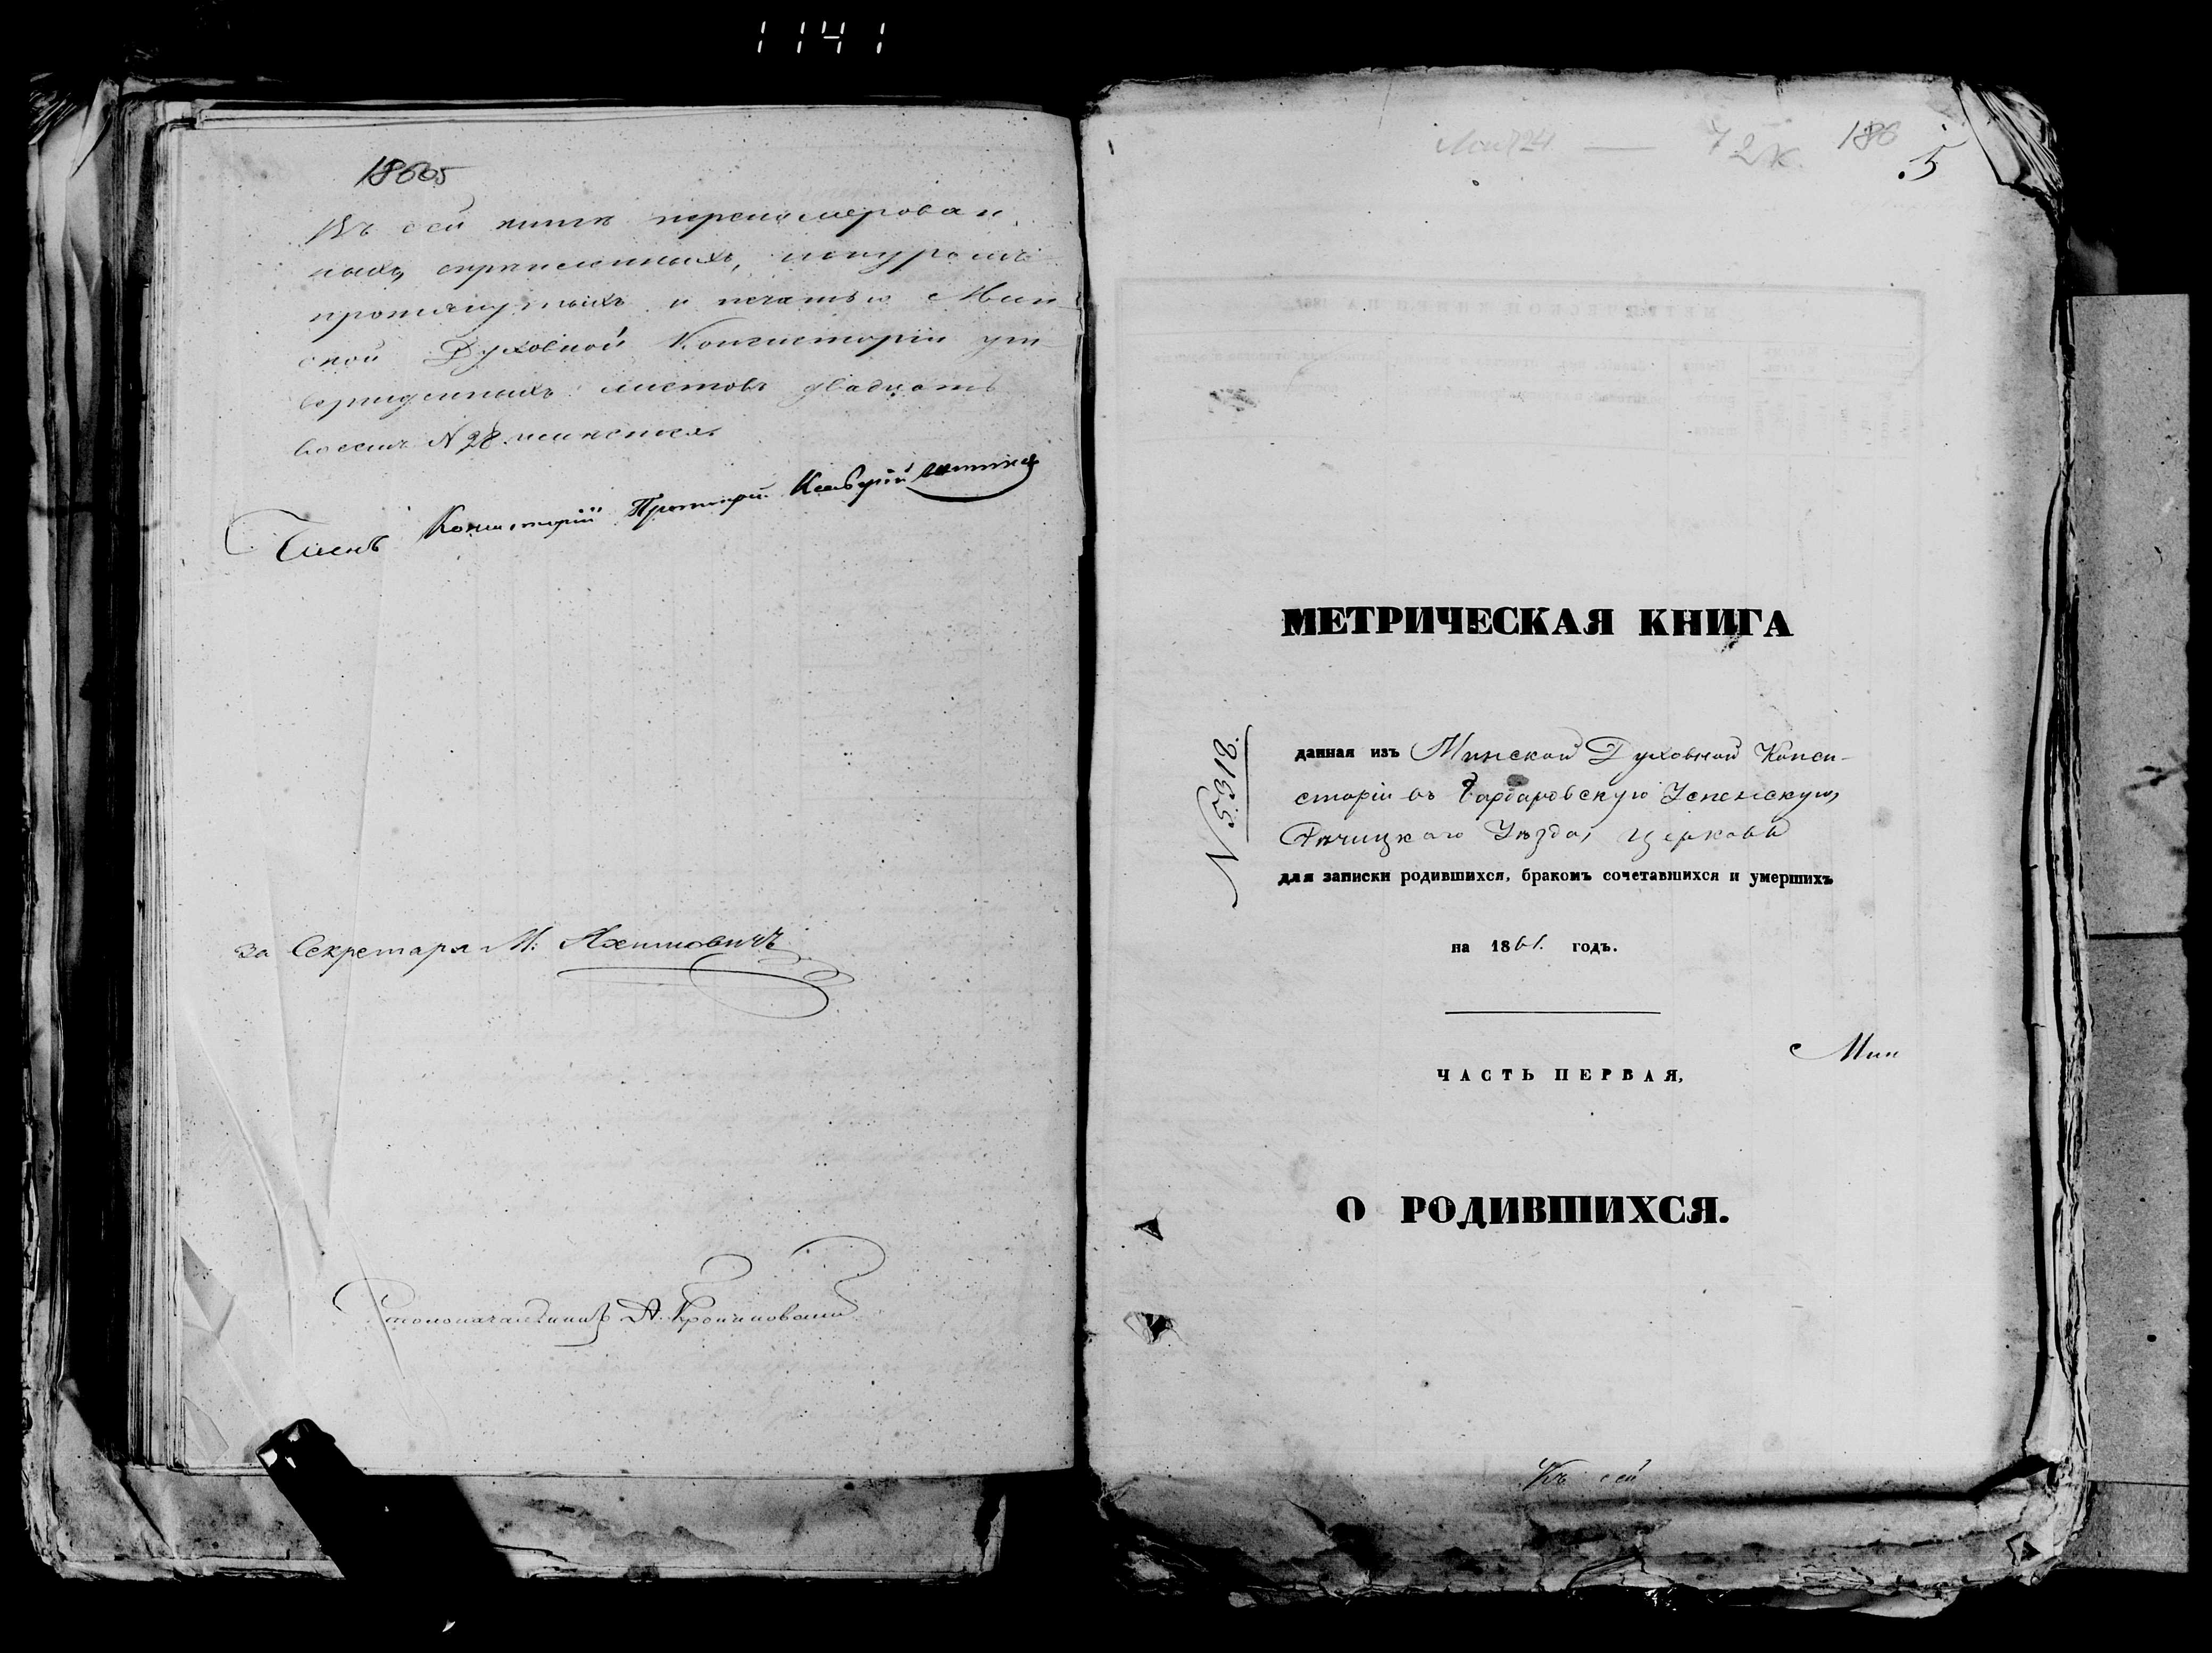 1141
Въ сей книгѣ перенумерован
ныхъ, скрѣпленныхъ, шнуромъ
протянутыхъ и печатью Мин-
ской Духовной Консисторіи ут-
вержденныхъ листовъ двадцать
восемь N 28. имѣется.
Членъ Консисторіи Протоіерей
За Секретаря М: Яхимовичъ
Столоначальникъ А.
186
5
МЕТРИЧЕСКАЯ КНИГА
N 5318.
данная изъ Минской Духовной Конси-
сторіи въ Барбаровскую Успенскую,
Рѣчицкаго Уѣзда, церковь
для записки родившихся, бракомъ сочетавшихся и умершихъ
на 1861. годъ.
Мин
ЧАСТЬ ПЕРВАЯ,
О РОДИВШИХСЯ.
Въ сей